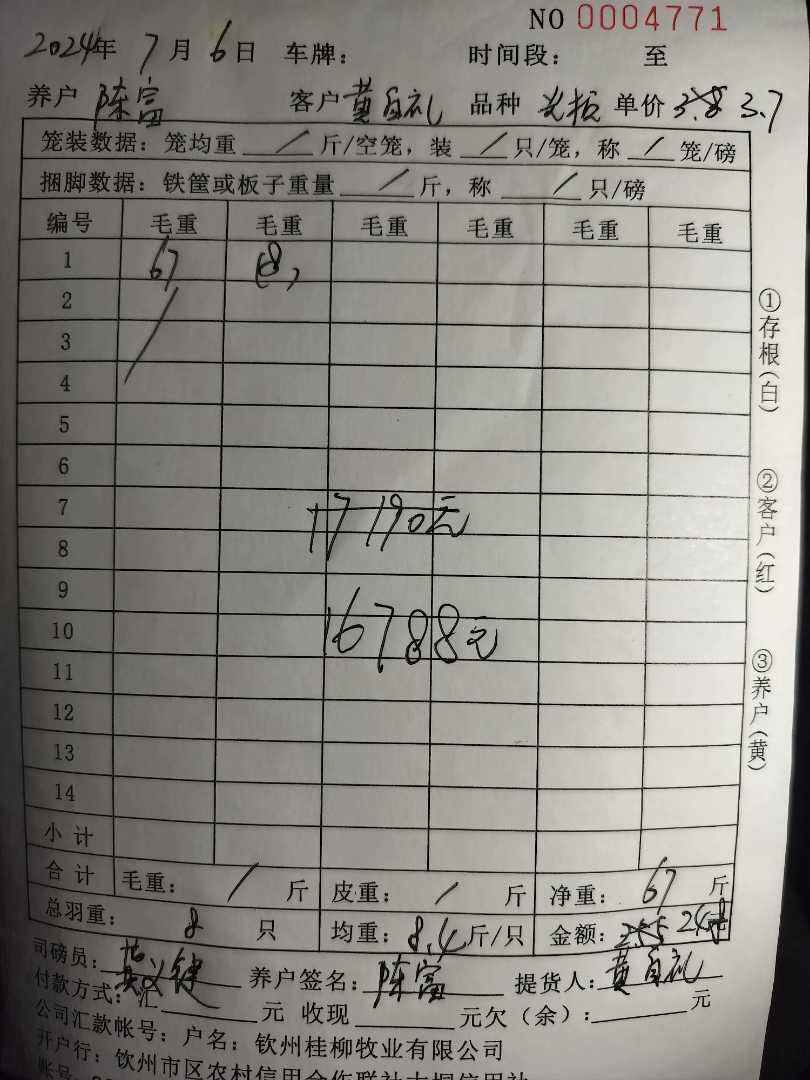 NO 0004771
2024年 7月 6日 车牌： 时间段： 至
养户 陈富 客户 黄自礼 品种 单价 3.8 3.7
笼装数据：笼均重 / 斤/空笼，装 / 只/笼，称 / 笼/磅
捆脚数据：铁筐或板子重量 / 斤，称 / 只/磅
编号 毛重 毛重 毛重 毛重 毛重 毛重
1 67 (8)
2
3
4
5
6
7 17190元
8
9
10 16788元
11
12
13
14
小计
合计 毛重： / 斤 皮重： / 斤 净重： 67 斤
总羽重： 8 只 均重： 8.4 斤/只 金额： 255 248
司磅员： 养户签名： 陈富 提货人： 黄自礼
付款方式：汇 元 收现 元欠（余）： 元
公司汇款帐号：户名：钦州桂柳牧业有限公司
开户行：钦州市区农村信用合作联社大垌信用社
账号
①存根（白） ②客户（红） ③养户（黄）